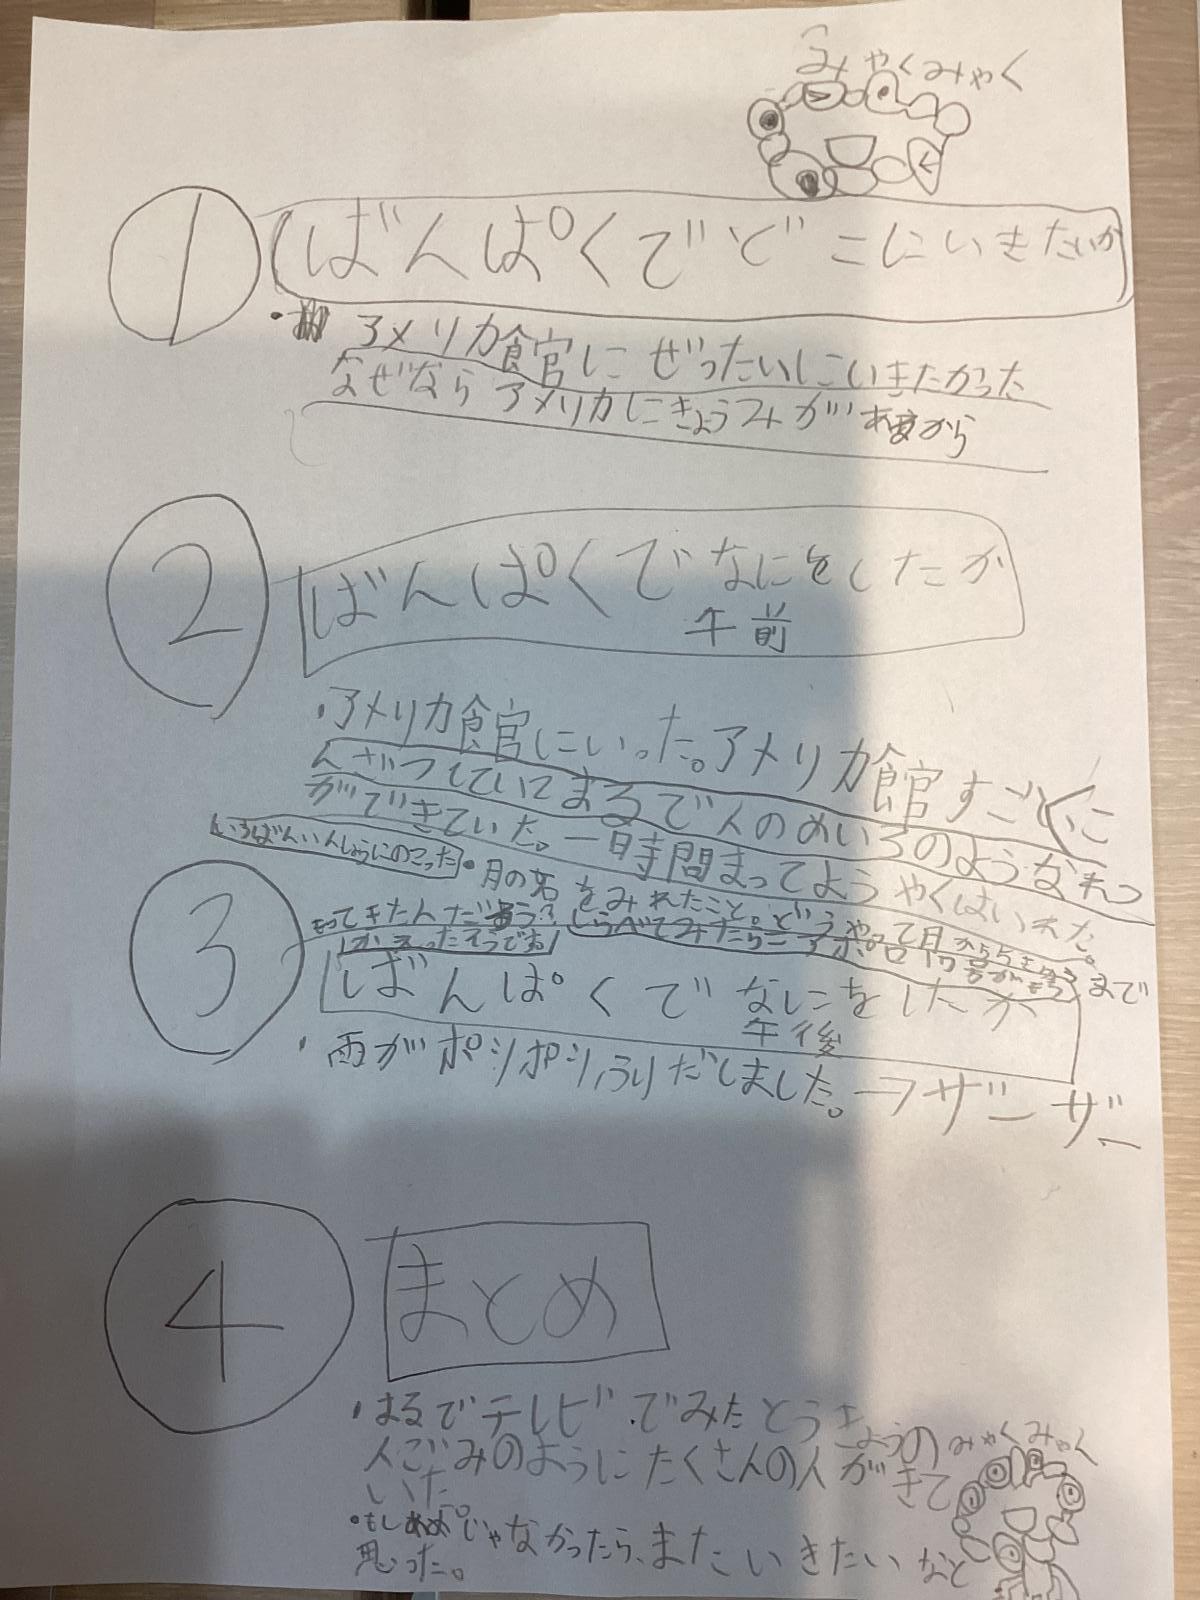 みゃくみゃく
1
ばんぱくでどこにいきたいか
・アメリカ館にぜったいにいきたかった
なぜなら アメリカにきょうみがあるから
2
ばんぱくでなにをしたか
午前
・アメリカ館にいった。アメリカ館すごくこ
んざつしていてまるで人のめいろのようなれつ
ができていた。一時間まってようやくはいれた。
いちばんいんしょうにのこった
・月の石をみれたこと。どうやって月から
もってきたんだろう?しらべてみたらアポロ
かえったそうです
3
ばんぱくでなにをしたか
午後
・雨がポツポツふりだしました。→ザーザー
4
まとめ
・まるでテレビでみたとうきょうの
人ごみのようにたくさんの人がきて
いた。
・もしあめじゃなかったら、またいきたいなと
思った。
みゃくみゃく